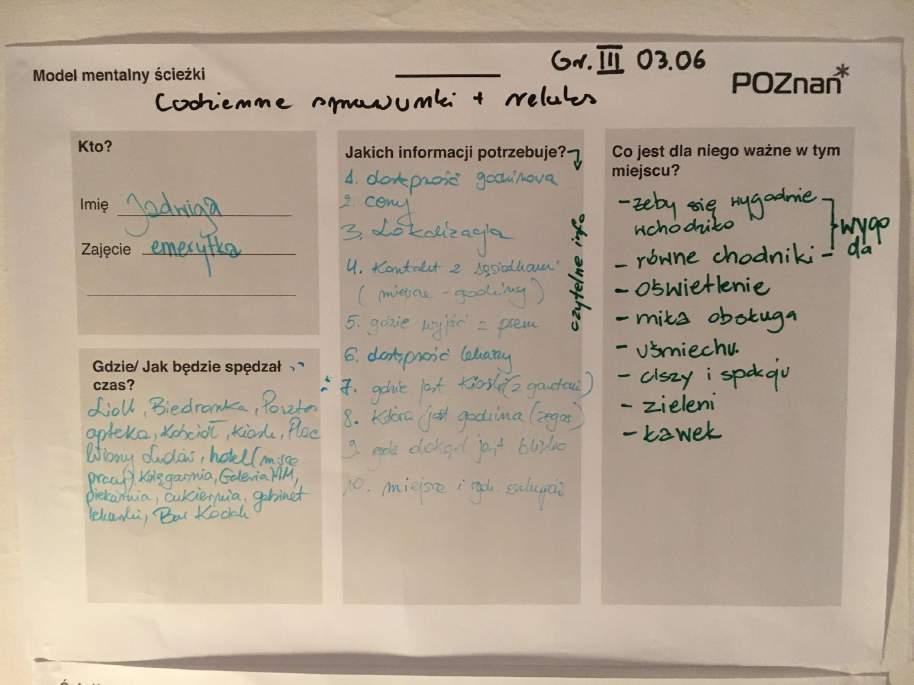 Gr. III 03.06
Model mentalny ścieżki
POZnań*
Codzienne sprawunki + relaks
Kto?
Imię Jadwiga
Zajęcie emerytka
Gdzie/ Jak będzie spędzał
czas?
Lidl, Biedronka, Poczta
apteka, Kościół, Kiosk, Plac
Wiosny Ludów, hotel (miejsce
pracy) Księgarnia, Galeria MM,
piekarnia, cukiernia, gabinet
lekarski, Bar Kociak
Jakich informacji potrzebuje?
czytelne info
1. dostępność godzinowa
2. ceny
3. Lokalizacja
4. Kontakt z sąsiadkami
(miejsce - godziny)
5. gdzie wyjść z psem
6. dostępność lekarzy
7. gdzie jest Kiosk (z gazetami)
8. Która jest godzina (zegar)
9. gdzie dokąd jest blisko
10. miejsce i godz.
Co jest dla niego ważne w tym
miejscu?
- żeby się wygodnie
wchodziło
- równe chodniki
wygo
da
- oświetlenie
- miła obsługa
- uśmiechu
- ciszy i spokoju
- zieleni
- ławek